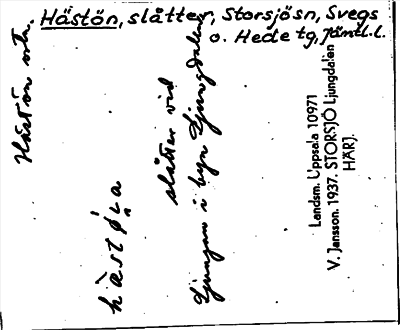 Hästön, slåtter, Storsjösn, Svegs
o. Hede tg, Jämtl. l.
Hästön
hästøn̥a
slåtter vid
Ljungan i byn Ljungdalen
Landsm. Uppsala 10971
V. Jansson. 1937. STORSJÖ Ljungdalen
HÄRJ.